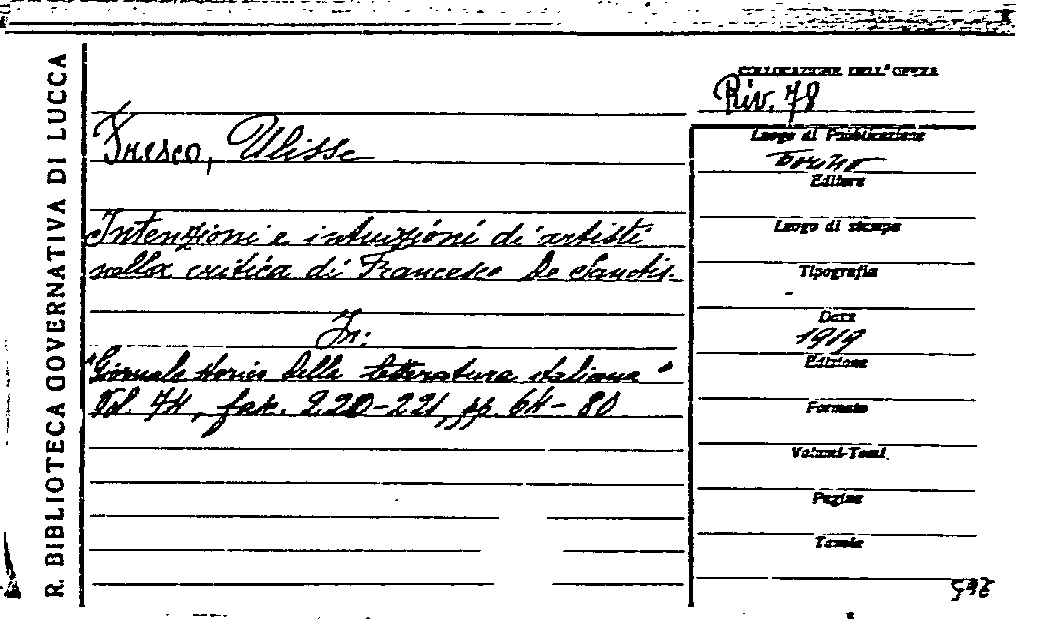 R. BIBLIOTECA GOVERNATIVA DI LUCCA
COLLOCAZIONE DELL'OPERA
Riv. 78
Fresco, Ulisse
Intenzioni e intuizioni di artisti
nella critica di Francesco De Sanctis.
In:
"Giornale storico della letteratura italiana"
Vol. 74, fasc. 220-221, pp. 64-80
Luogo di Pubblicazione
Torino
Editore
Luogo di stampa
Tipografia
Data
1919
Edizione
Formato
Volumi-Tomi
Pagine
Tavole